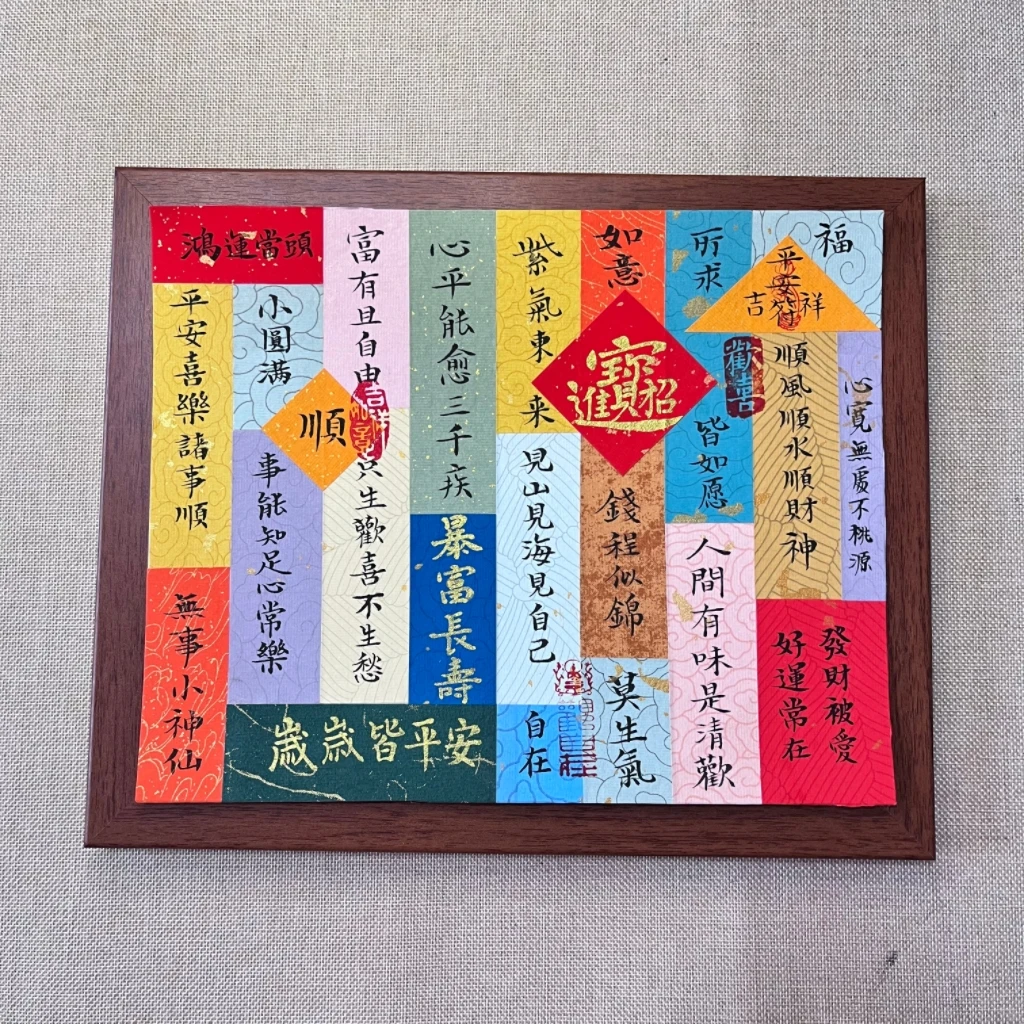 鴻運當頭
平安喜樂諸事順
無事小神仙
小圓滿
順
事能知足心常樂
富有且自由
吉祥
只生歡喜不生愁
心平能愈三千疾
暴富長壽
歲歲皆平安
紫氣東来
見山見海見自己
自在
如意
招財進寶
錢程似錦
莫生氣
所求
歡喜
皆如愿
人間有味是清歡
福
平安符
吉祥
順風順水順財神
心寬無處不桃源
發財被愛
好運常在